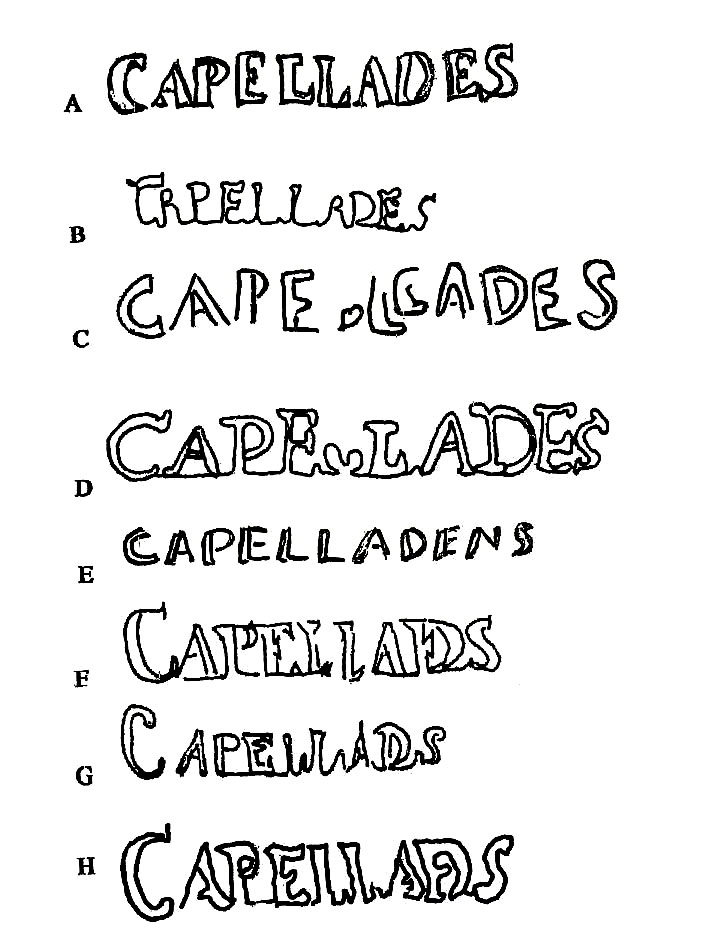 A CAPELLADES
B CAPELLADES
C CAPE LLADES
D CAPE LADES
E CAPELLADENS
F CAPELLADS
G CAPELLADS
H CAPELLADS